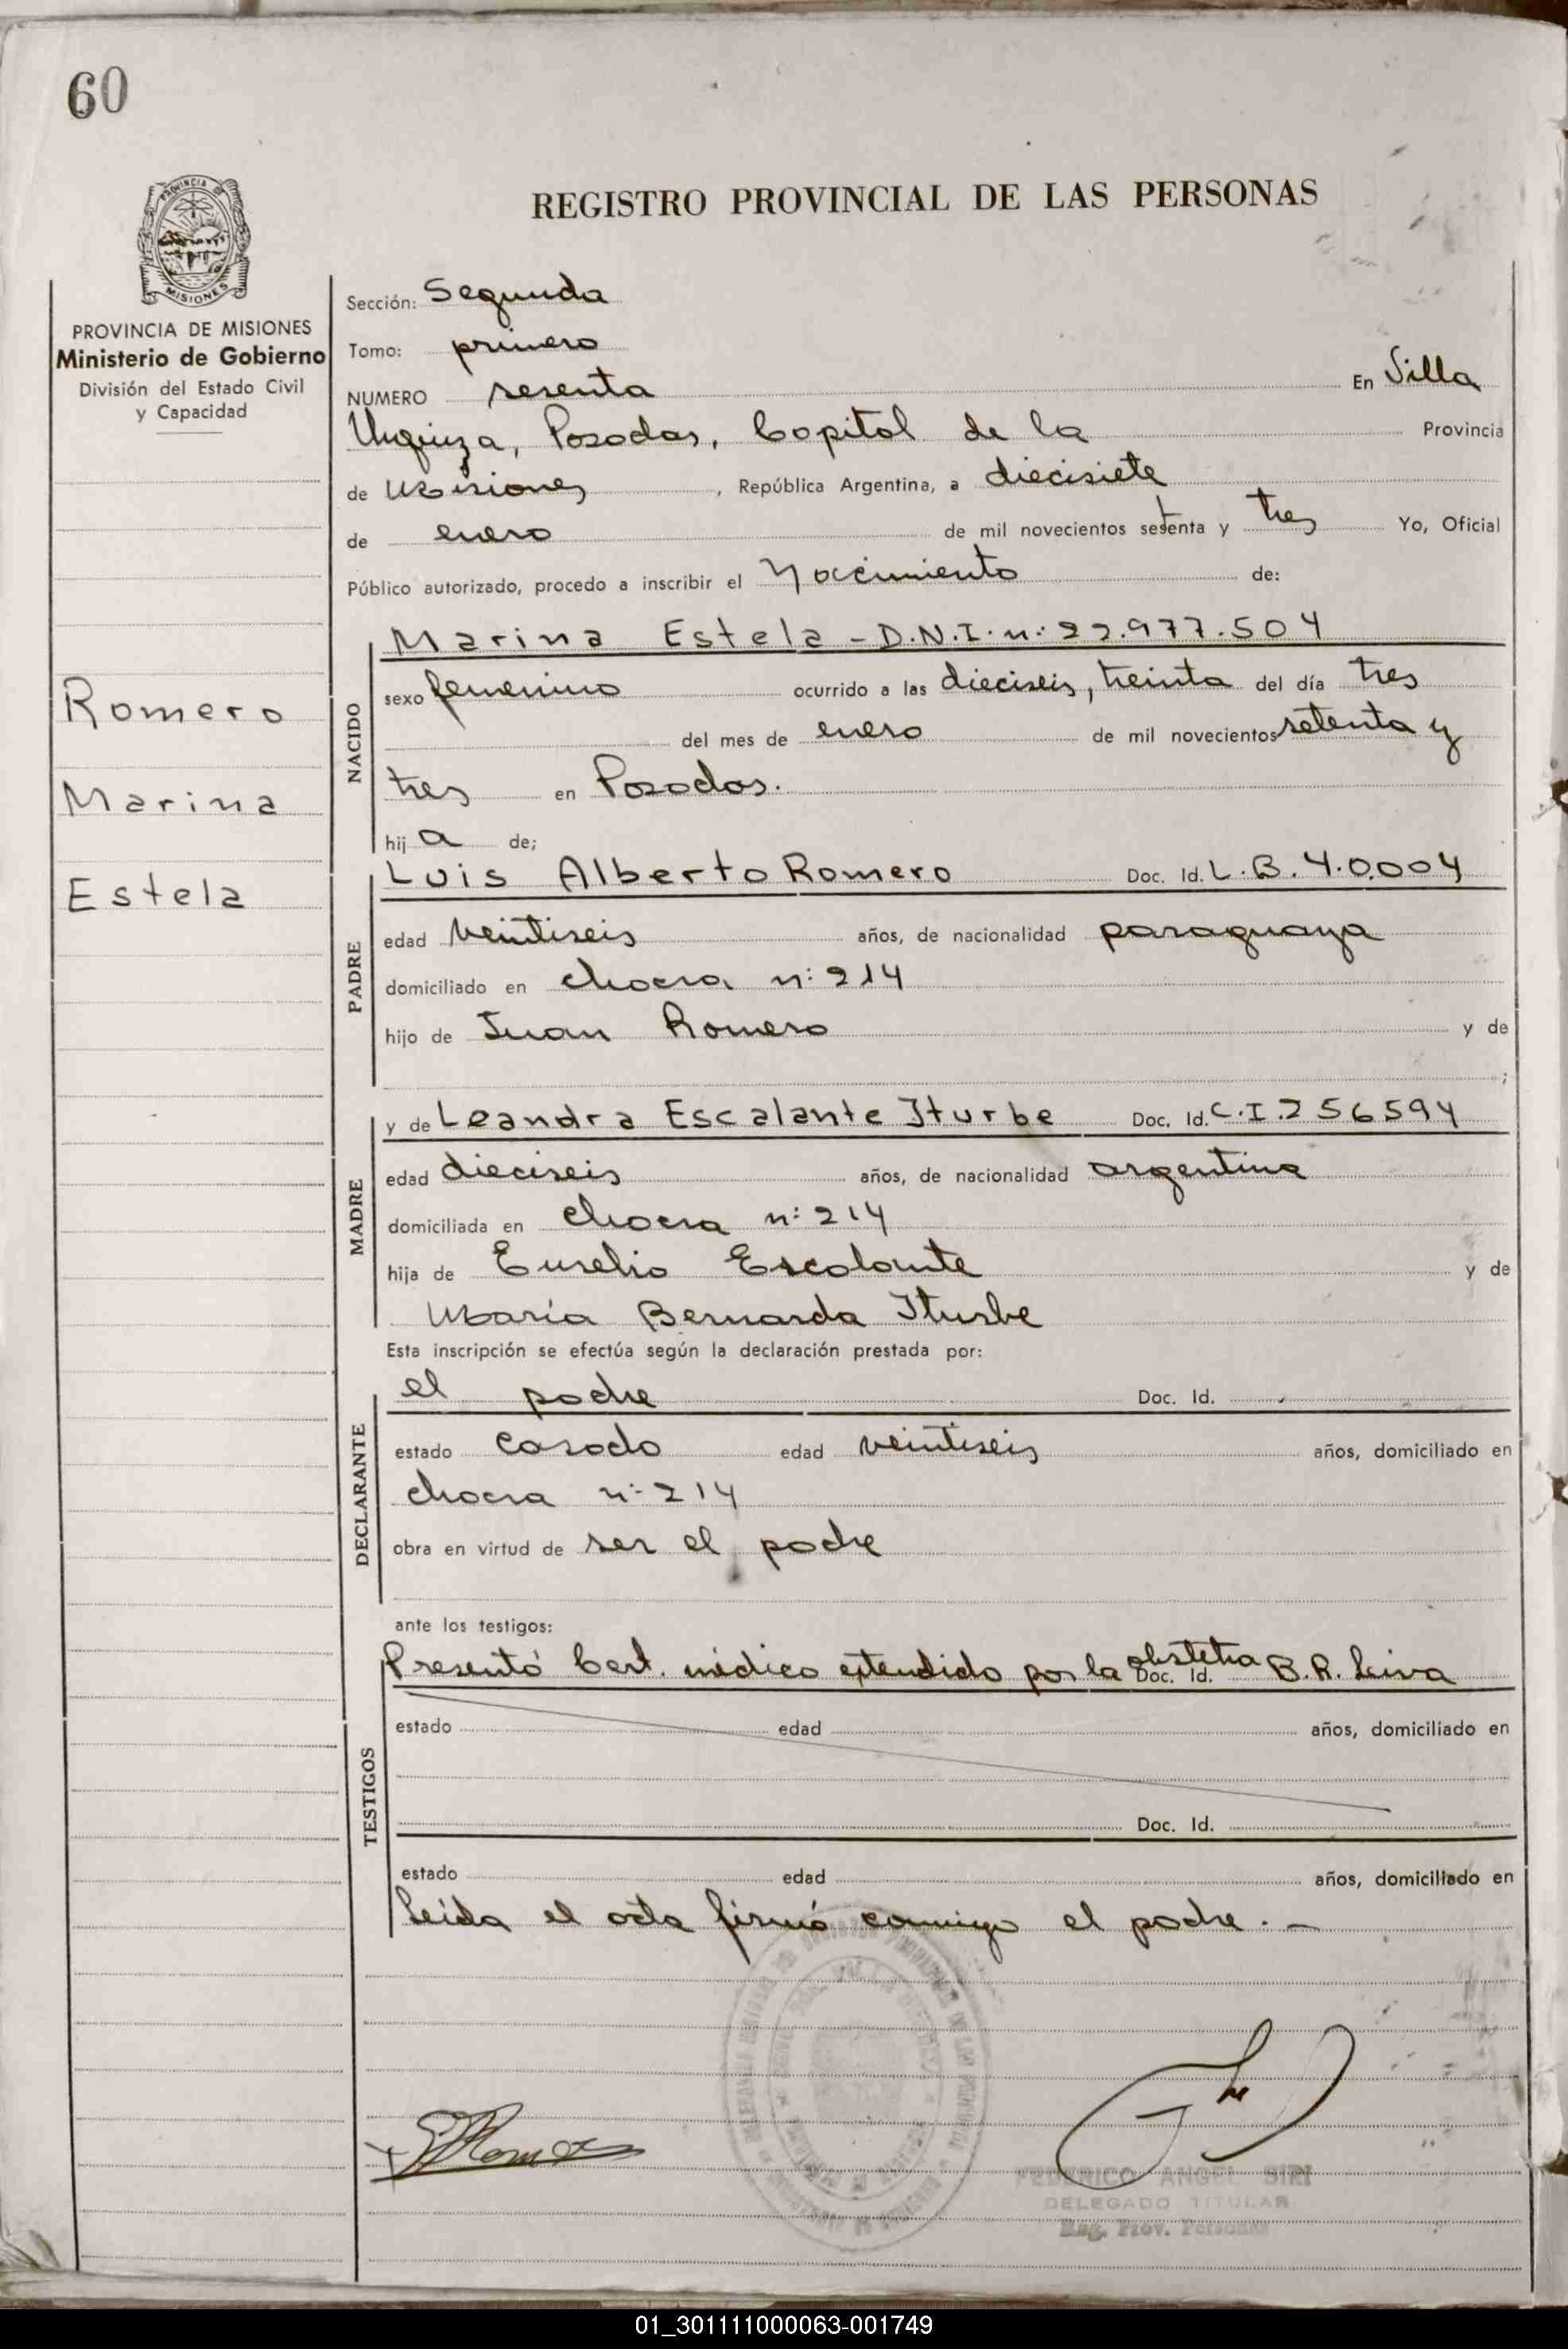 60
PROVINCIA DE
MISIONES
REGISTRO PROVINCIAL DE LAS PERSONAS
PROVINCIA DE MISIONES
Ministerio de Gobierno
División del Estado Civil
y Capacidad
Romero
Marina
Estela
Sección: Segunda
Tomo: primero
NUMERO sesenta En Villa
Urquiza, Posadas, Capital de la Provincia
de Misiones, República Argentina, a diecisiete
de enero de mil novecientos setenta y tres Yo, Oficial
Público autorizado, procedo a inscribir el Nacimiento de:
NACIDO
Marina Estela - D.N.I. n: 22.977.504
sexo femenino ocurrido a las dieciseis, treinta del día tres
del mes de enero de mil novecientos setenta y
tres en Posadas.
hija de;
PADRE
Luis Alberto Romero Doc. Id. L.B. 4.0.004
edad veintiseis años, de nacionalidad paraguaya
domiciliado en chacra n: 214
hijo de Juan Romero y de
;
MADRE
y de Leandra Escalante Iturbe Doc. Id. C.I. 256594
edad dieciseis años, de nacionalidad argentina
domiciliada en chacra n: 214
hija de Eurelio Escalante y de
María Bernarda Iturbe
Esta inscripción se efectúa según la declaración prestada por:
DECLARANTE
el padre Doc. Id.
estado casado edad veintiseis años, domiciliado en
chacra n: 214
obra en virtud de ser el padre
ante los testigos:
TESTIGOS
Presentó Cert. médico extendido por la obstetra Doc. Id. B.R. Leiva
estado edad años, domiciliado en
Doc. Id.
estado edad años, domiciliado en
Leída el acta firmó conmigo el padre. -
FEDERICO ANGEL SIRI
DELEGADO TITULAR
Reg. Prov. Personas
01_301111000063-001749